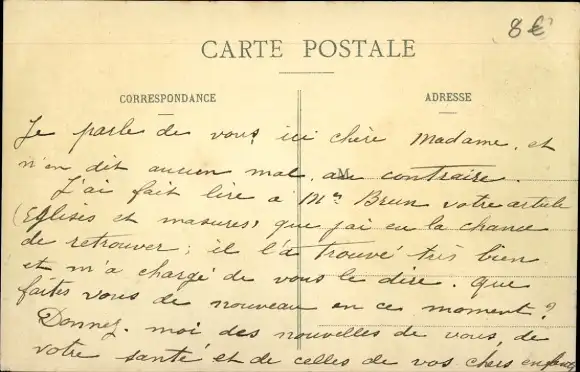 8 €
CARTE POSTALE
CORRESPONDANCE
ADRESSE
Je parle de vous, ici chère Madame, et
n'en dit aucun mal, au contraire.
M
J'ai fait lire à Mr Brun votre article
(Eglises et masures) que j'ai eu la chance
de retrouver; il l'a trouvé très bien
et m'a chargé de vous le dire. Que
faites vous de nouveau en ce moment?
Donnez-moi des nouvelles de vous, de
votre santé et de celles de vos chers enfants